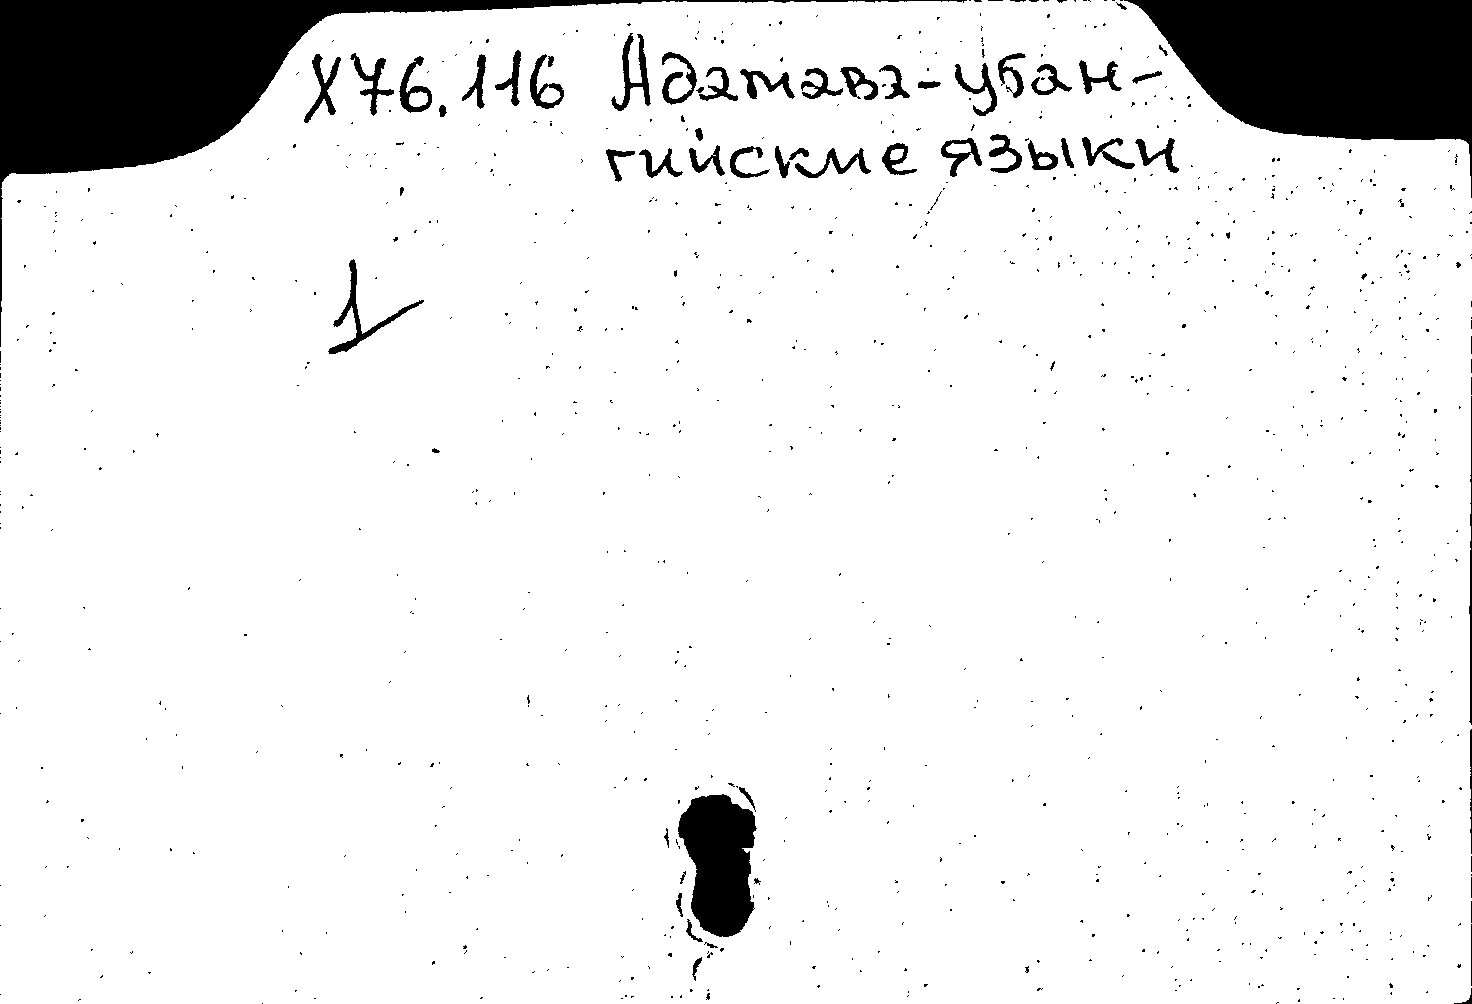 Х76.116 Адамава-убан-
гийские языки
1